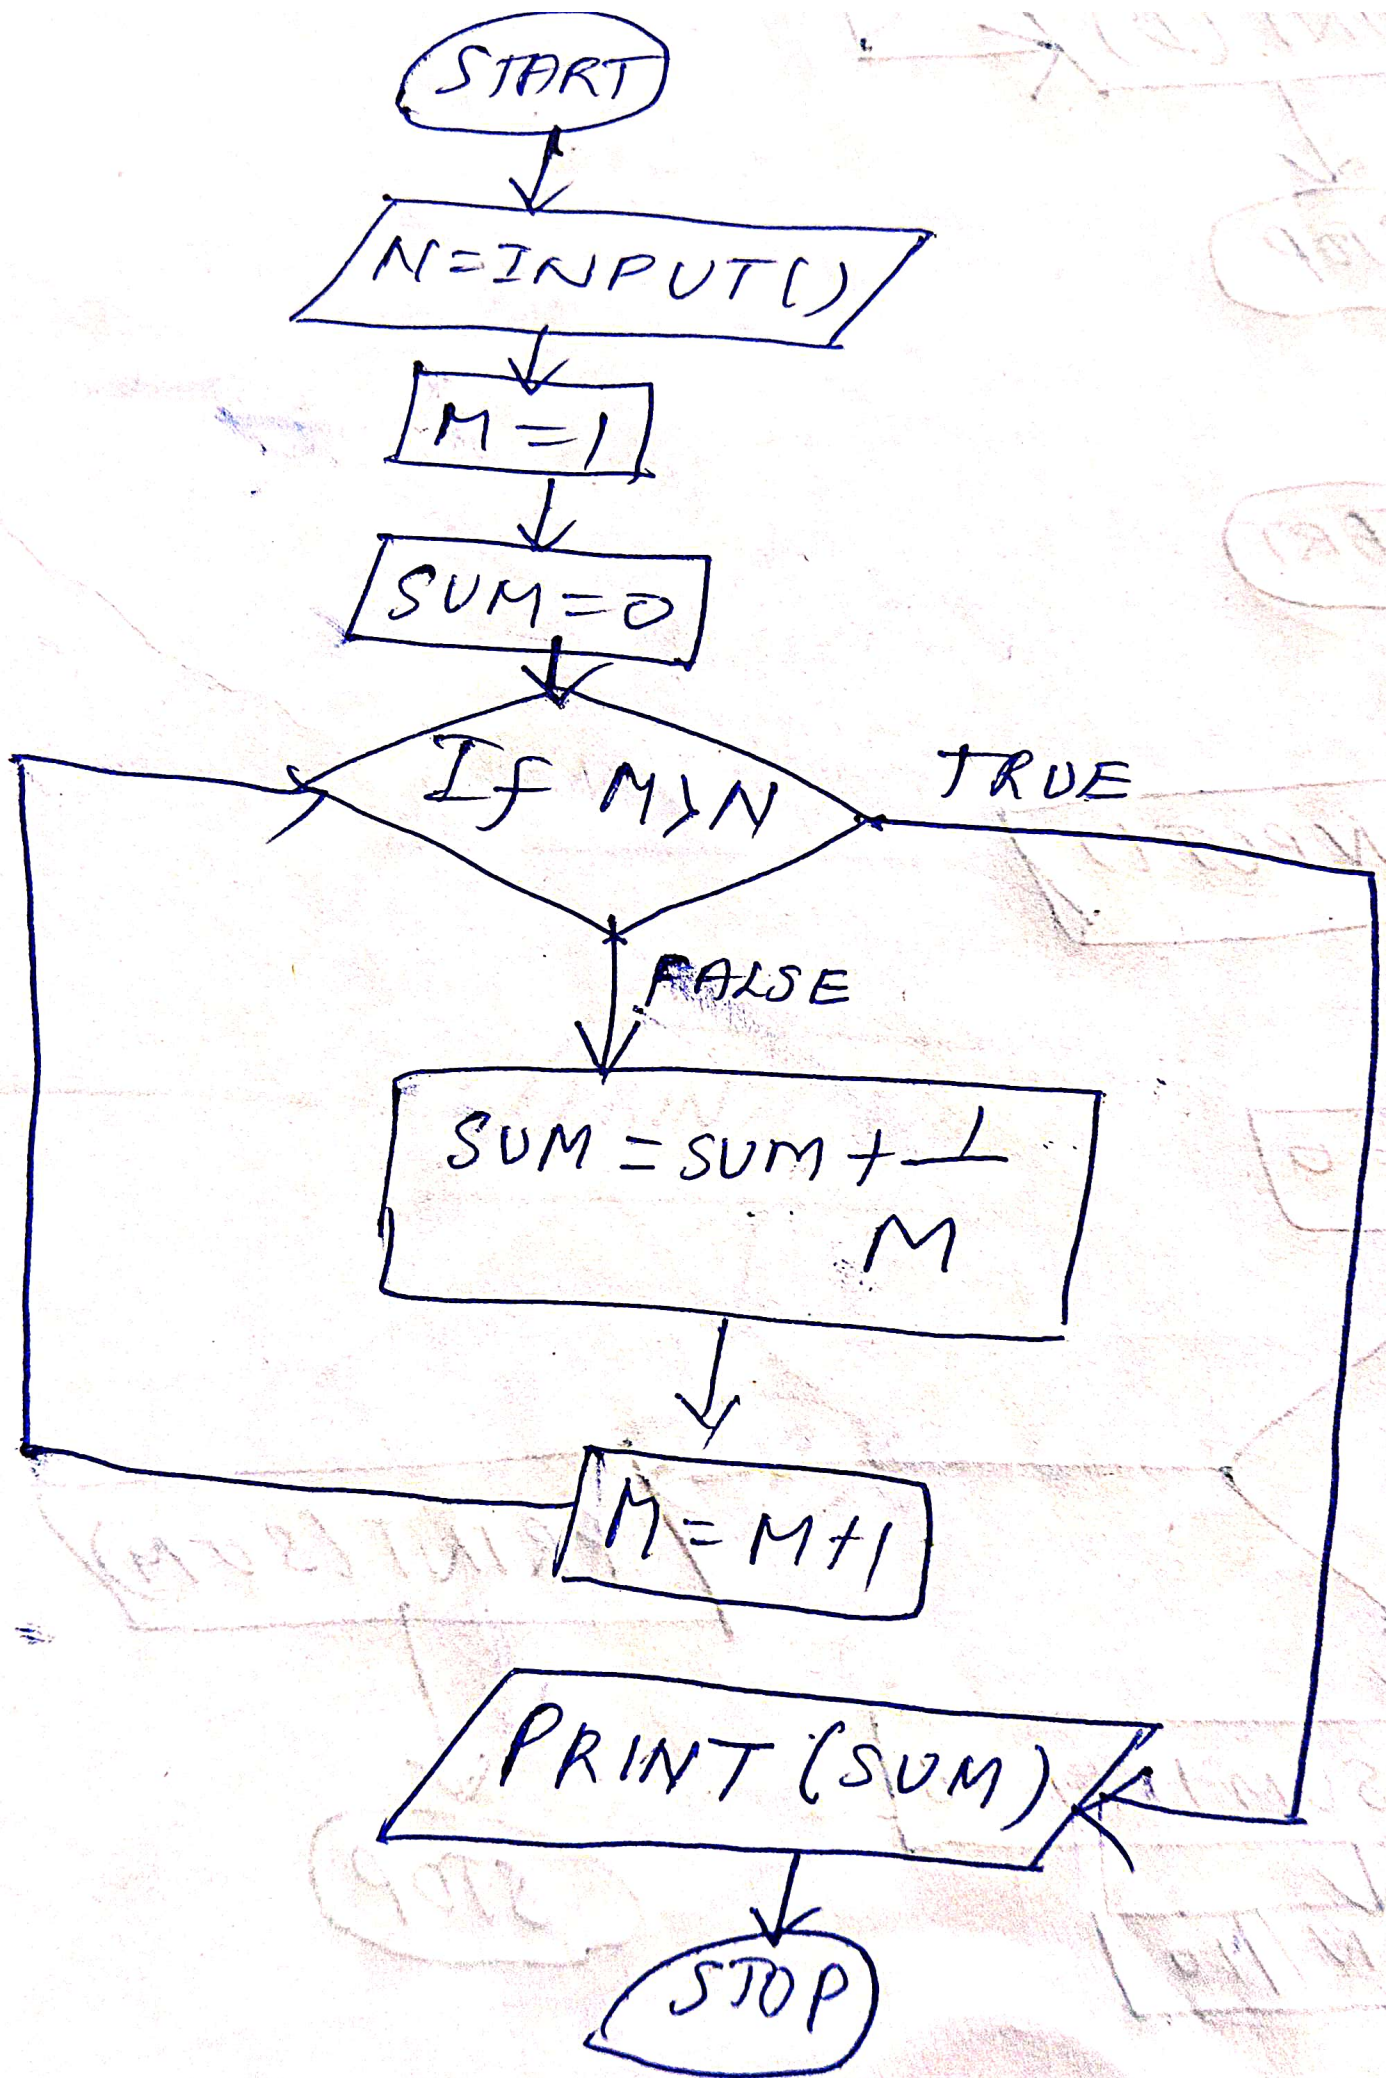 START
N=INPUT()
M=1
SUM=0
If M>N
TRUE
FALSE
SUM=SUM+1
M
M=M+1
PRINT(SUM)
STOP